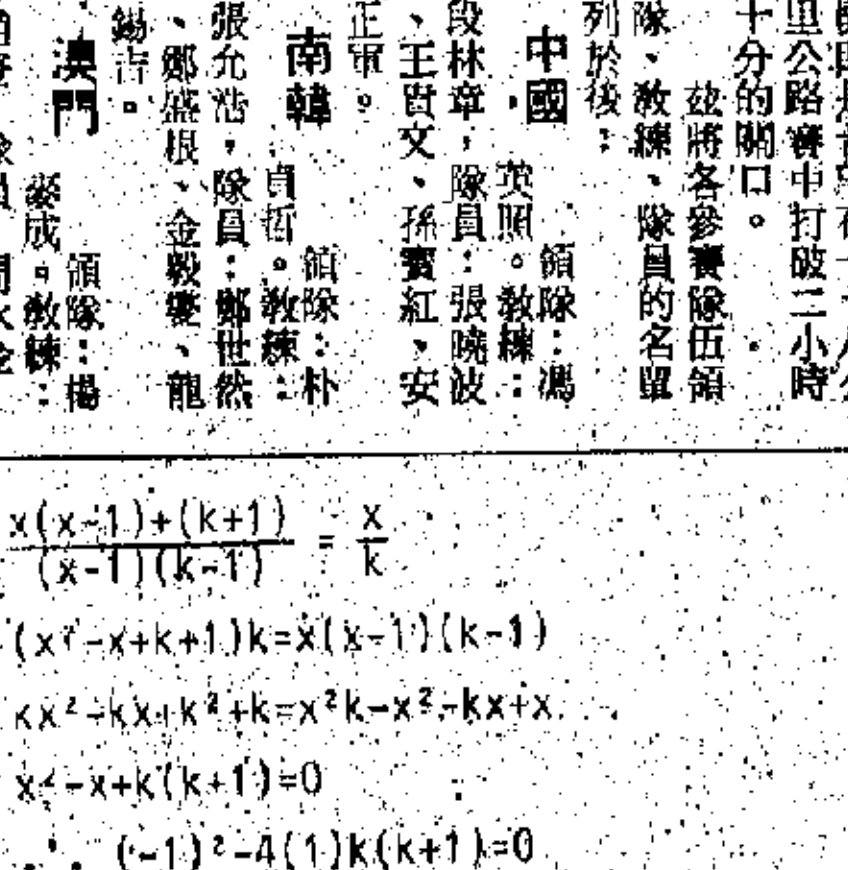 里公路賽中打破二小時
十分的關口。
玆將各參賽隊伍領
隊、教練、隊員的名單
列於後：
中國
領隊：馮
英照。教練：
段林章，隊員：張曉波
、王貴文、孫寶紅、安
正軍。
南韓
領隊：朴
貞哲。教練：
張允浩，隊員：鄭世然
、鄭盛根、金毅變、龍
錫吉。
澳門
領隊：楊
麥成。教練：
x(x-1)+(k+1) / (x-1)(k-1) = x / k
(x²-x+k+1)k=x(x-1)(k-1)
kx²-kx+k²+k=x²k-x²-kx+x
x²-x+k(k+1)=0
(-1)²-4(1)k(k+1)=0